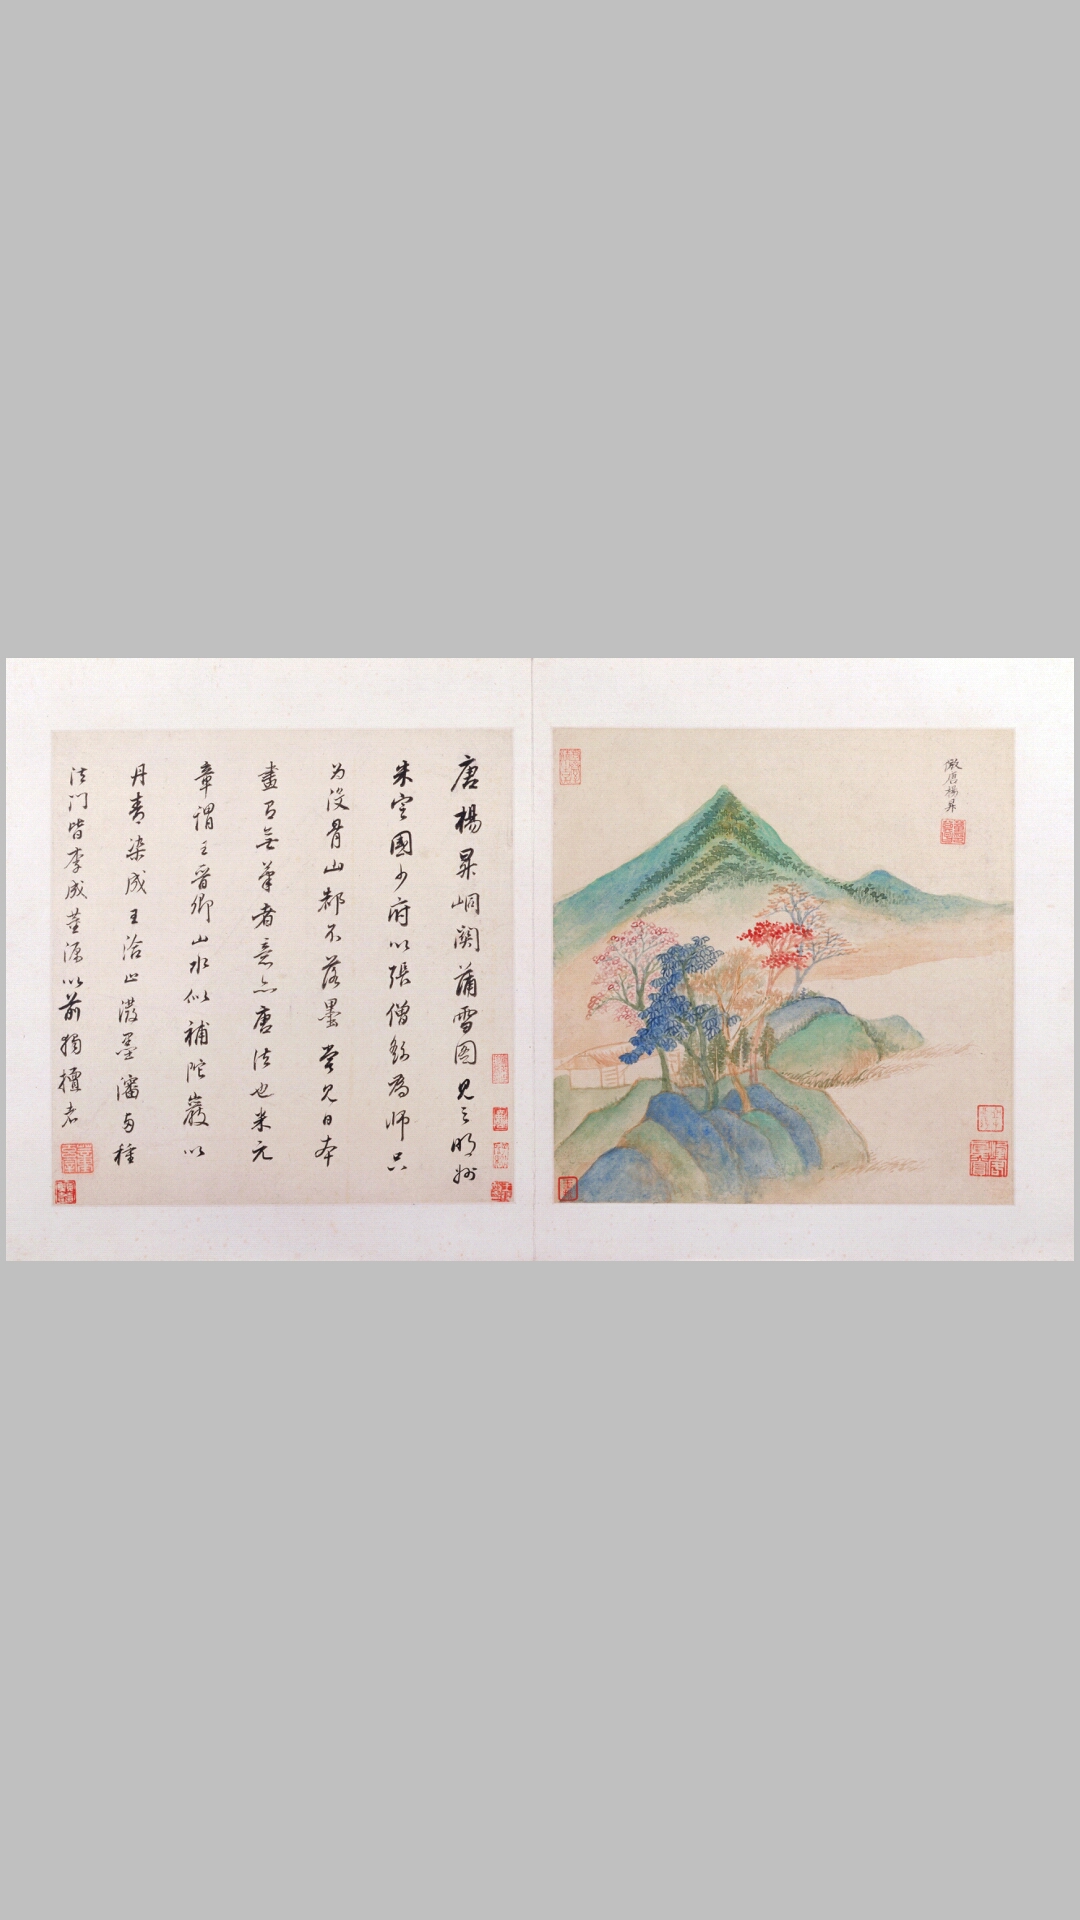 倣唐楊昇
唐楊昇峒關蒲雪图見之明州
朱定國少府以張僧繇為师只
为没骨山都不落墨嘗见日本
畫有無筆者意亦唐法也米元
章謂王晉卿山水似補陀巖以
丹青染成王洽之潑墨瀋毎種
法门皆李成董源以前獨擅者